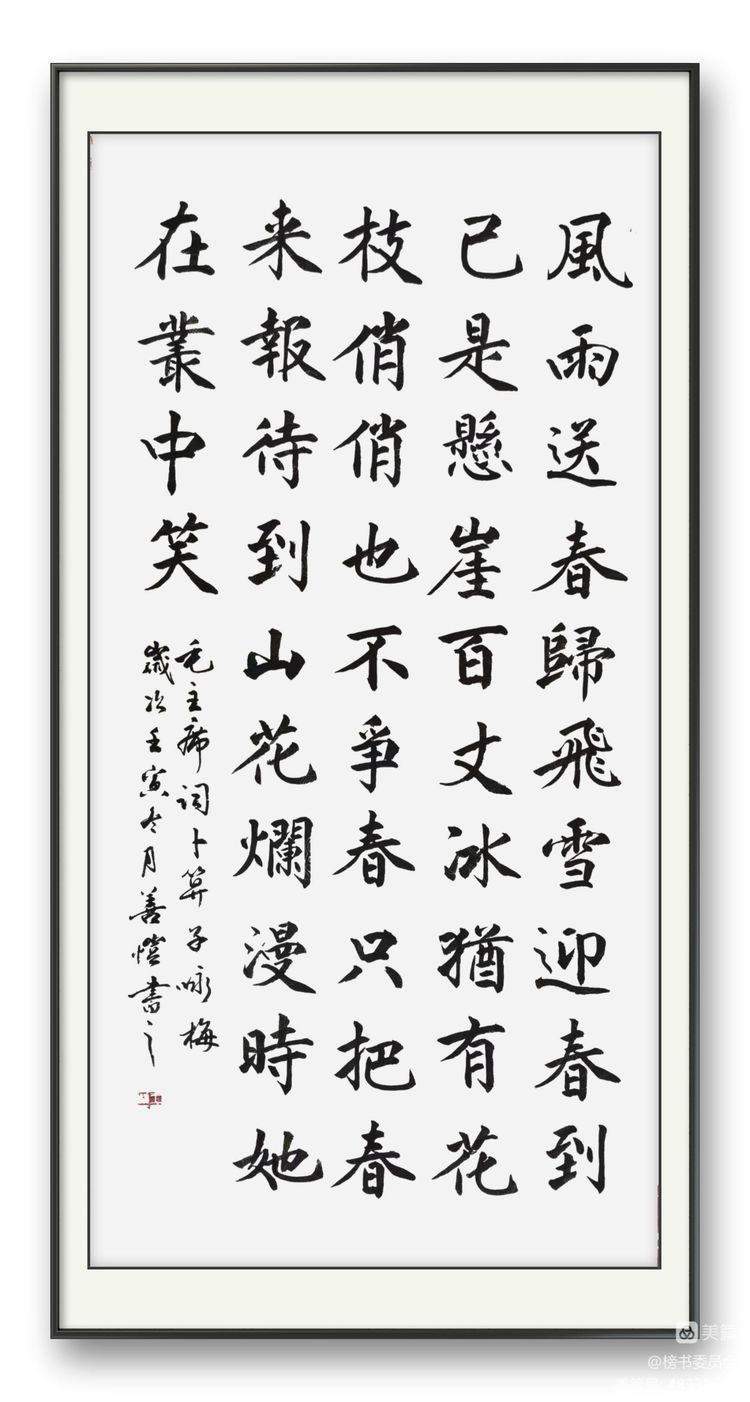 風雨送春歸飛雪迎春到
已是懸崖百丈冰猶有花
枝俏俏也不爭春只把春
来報待到山花爛漫時她
在叢中笑
毛主席词卜算子咏梅
歲次壬寅冬月善愷書之
美篇
@榜书委员会